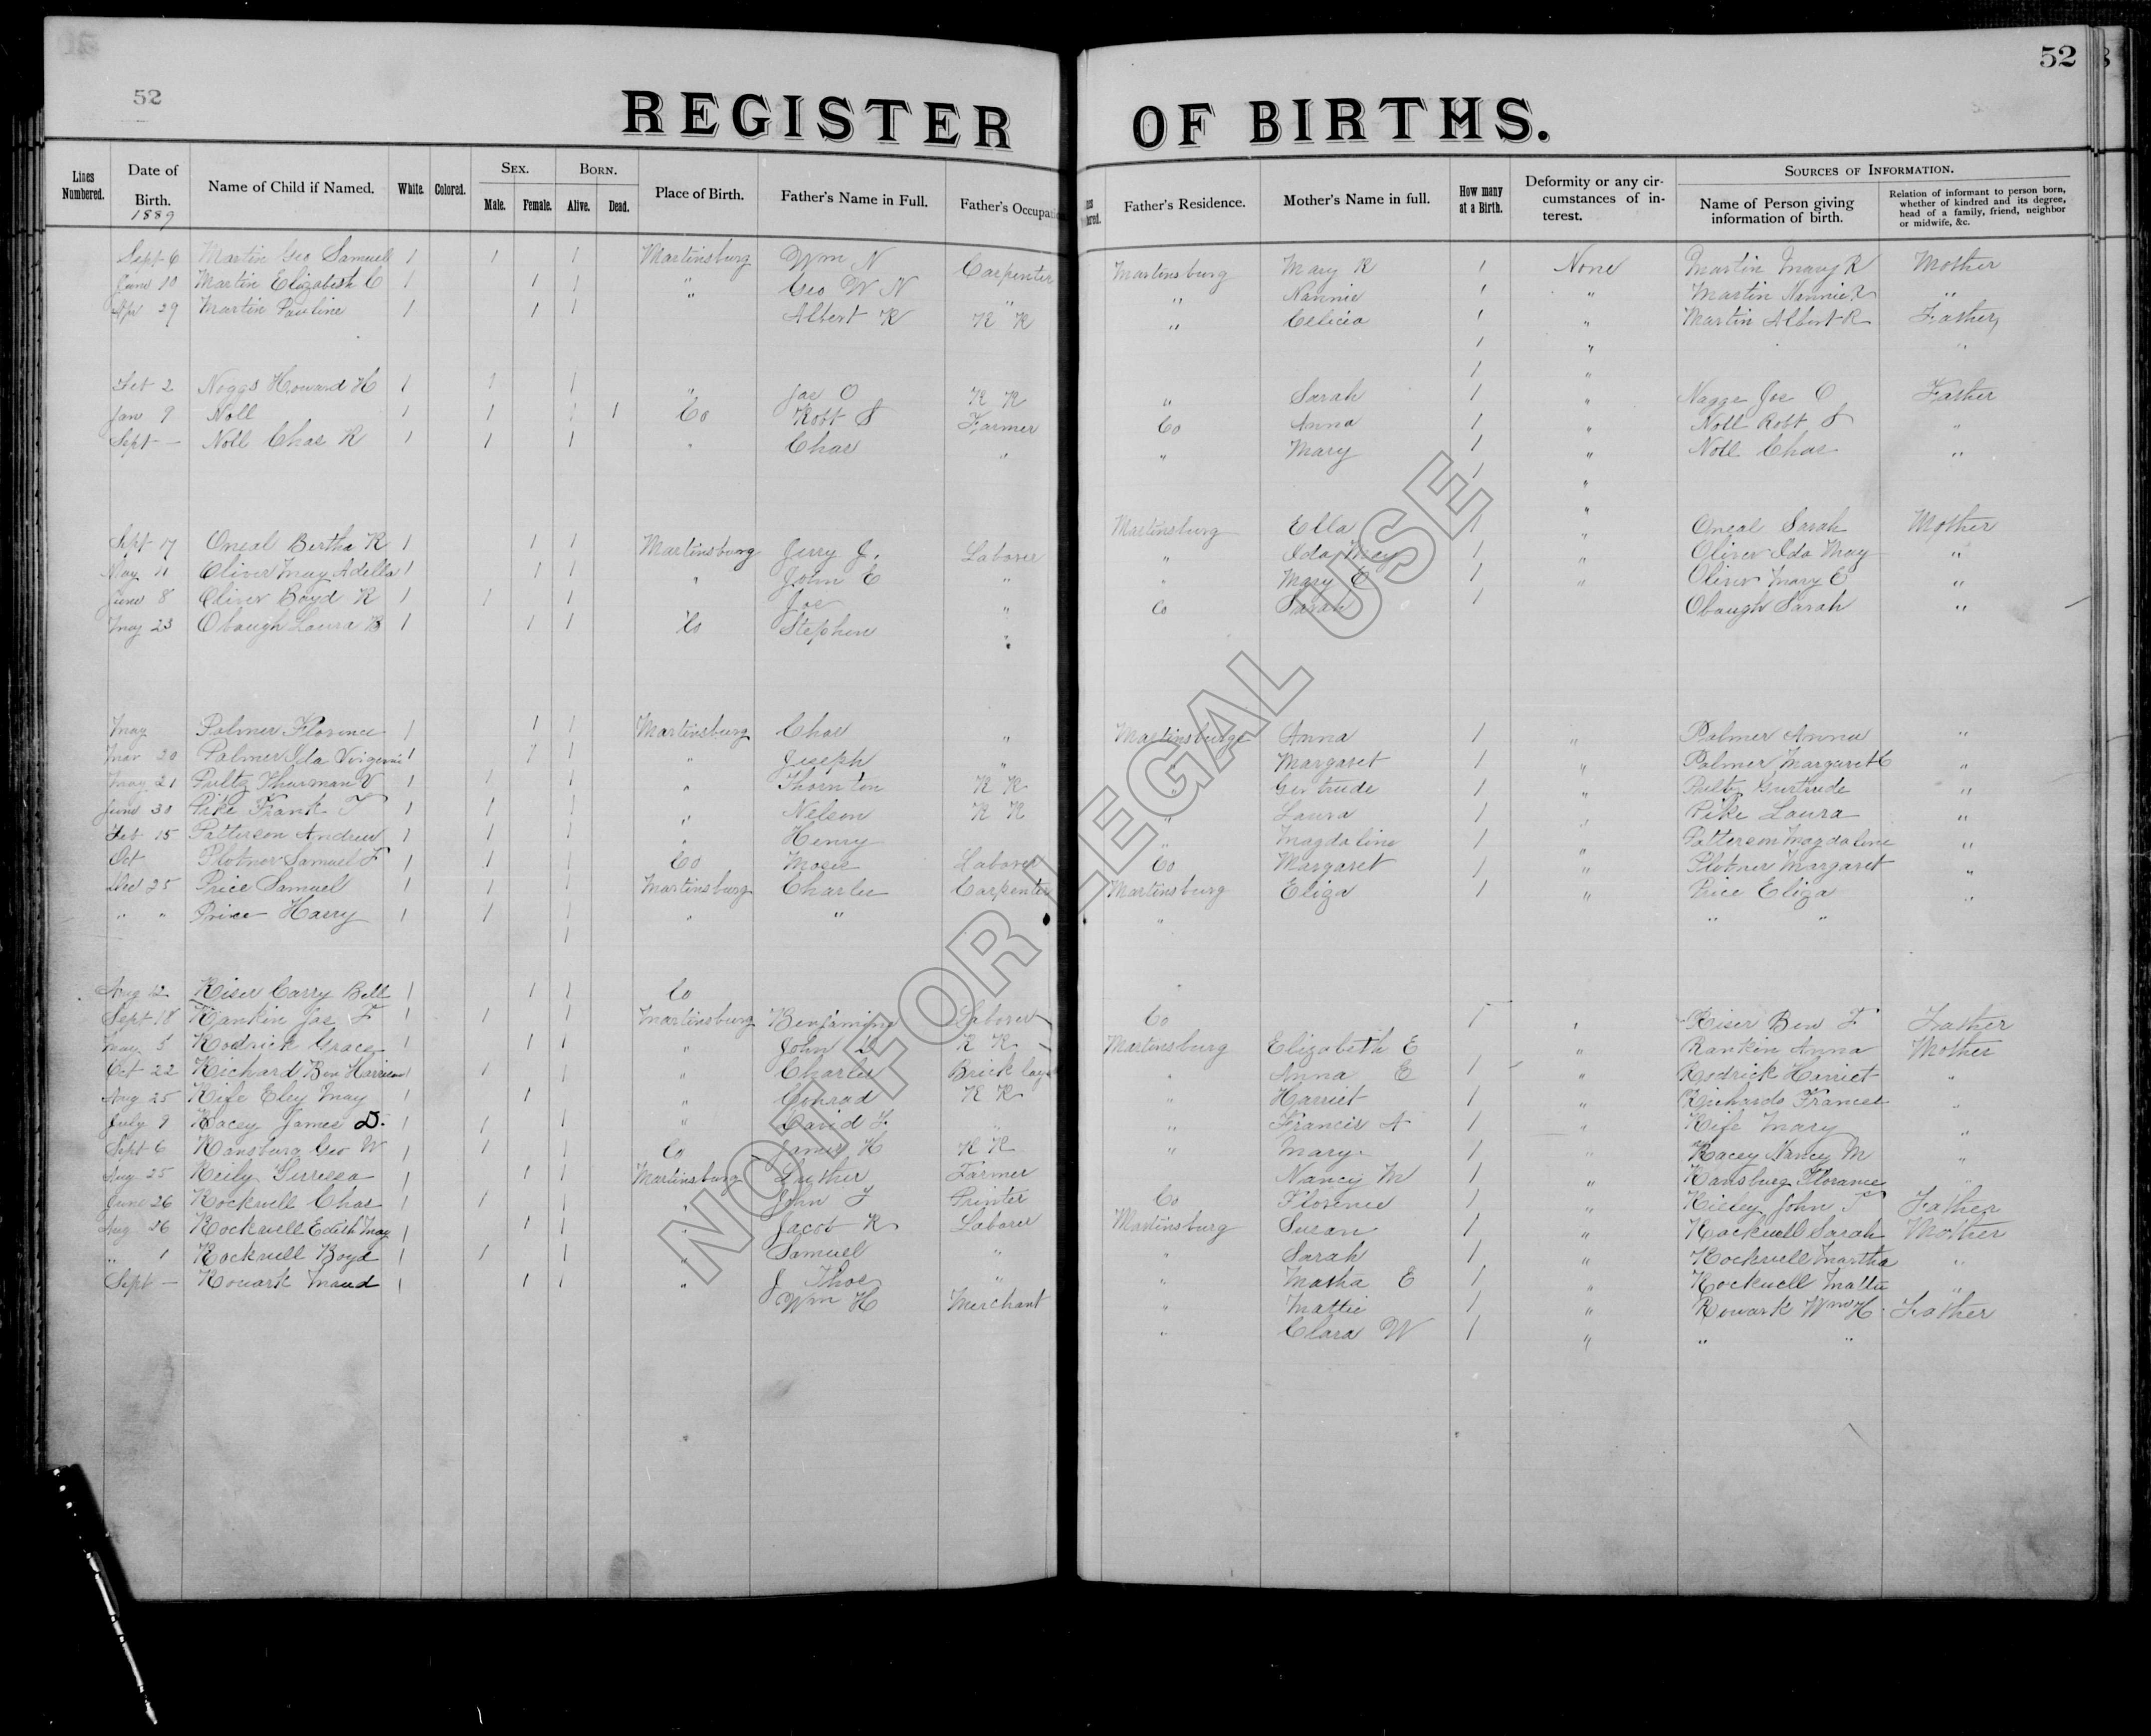 52
52
REGISTER OF BIRTHS.
Lines Numbered. Date of Birth. Name of Child if Named. White. Colored. Sex. Male. Female. Born. Alive. Dead. Place of Birth. Father's Name in Full. Father's Occupatio Father's Residence. Mother's Name in full. How many at a Birth. Deformity or any circumstances of interest. Sources of Information. Name of Person giving information of birth. Relation of informant to person born, whether of kindred and its degree, head of a family, friend, neighbor or midwife, &c.
1889
Sept 6 Martin Geo Samuel 1 1 1 Martinsburg Wm N Carpenter Martinsburg Mary R 1 None Martin Mary R Mother
June 10 Martin Elizabeth C 1 1 1 " Geo W N " " Nannie 1 " Martin Nannie "
Apr 29 Martin Pauline 1 1 1 " Albert R R R " Celicia 1 " Martin Albert R Father
1 " "
1 "
Feb 2 Noggs Howard H 1 1 1 " Joe O R R " Sarah 1 " Naggs Joe O Father
Jan 9 Noll 1 1 1 Co Robt S Farmer Co Anna 1 " Noll Robt S "
Sept — Noll Chas R 1 1 1 " Chas " " Mary 1 " Noll Chas "
1 "
"
Sept 17 Oneal Bertha R 1 1 1 Martinsburg Jerry J. Laborer Martinsburg Ella 1 " Oneal Sarah Mother
May 11 Oliver May Adella 1 1 1 " John E " " Ida May 1 " Oliver Ida May "
June 8 Oliver Boyd R 1 1 1 Joe " " Mary E 1 " Oliver Mary E "
May 23 Obaugh Laura B 1 1 1 Co Stephen " Co Sarah 1 Obaugh Sarah "
May Palmer Florence 1 1 1 Martinsburg Chas " Martinsburg Anna 1 " Palmer Anna "
Mar 20 Palmer Ida 1 1 1 " Joseph " " Margaret 1 " Palmer Margaret C "
May 21 Pultz Thurman V 1 1 1 " Thornton R R " Gertrude 1 " Pultz Gurtrude "
June 30 Pike Frank F 1 1 1 " Nelson R R " Laura 1 " Pike Laura "
Feb 15 Patterson Andrew 1 1 1 " Henry " Magdaline 1 " Patterson Magdaline "
Oct Plotner Samuel F 1 1 1 Co Moses Laborer Co Margaret 1 " Plotner Margaret "
Dec 25 Price Samuel 1 1 1 Martinsburg Charlie Carpenter Martinsburg Eliza 1 " Price Eliza "
" " Price Harry 1 1 1 " " " " "
1
Aug 12 Kiser Carry Bell 1 1 1 Co "
Sept 18 Rankin Jas F 1 1 1 Martinsburg Benjamine Laborer Co 1 " Kiser Ben F Father
May 5 Rodrick Grace 1 1 1 " John R R Martinsburg Elizabeth E " Rankin Anna Mother
Oct 22 Richard Ben Harrison 1 1 1 " Charles Brick lay " Anna E 1 " Rodrick Harriet "
Aug 25 Rife Eley May 1 1 " Conrad R R " Harriet 1 " Richards Frances "
July 9 Racey James D. 1 1 1 " David F. " " Francis A 1 " Rife Mary "
Sept 6 Ransburg Geo W 1 1 1 Co James H R R " Mary 1 " Racey Nancy M "
Aug 25 Reily 1 1 1 Martinsburg Luther Farmer Nancy M 1 " Ransburg Florance "
June 26 Rockwell Chas 1 1 1 " John F Printer Co Florence 1 " Rieley John F Father
Aug 26 Rockwell Edith May 1 1 1 " Jacob R Laborer Martinsburg Susan 1 " Rockwell Sarah Mother
" 1 Rockwell Boyd 1 1 1 " Samuel " " Sarah 1 " Rockwell Martha "
Sept — Rowark Maud 1 1 1 " J Thos " " Matha E 1 " Rockwell Mattie "
Wm H Merchant " Mattie 1 " Rowark Wm H. Father
" Clara W 1 " " "
NOT FOR LEGAL USE